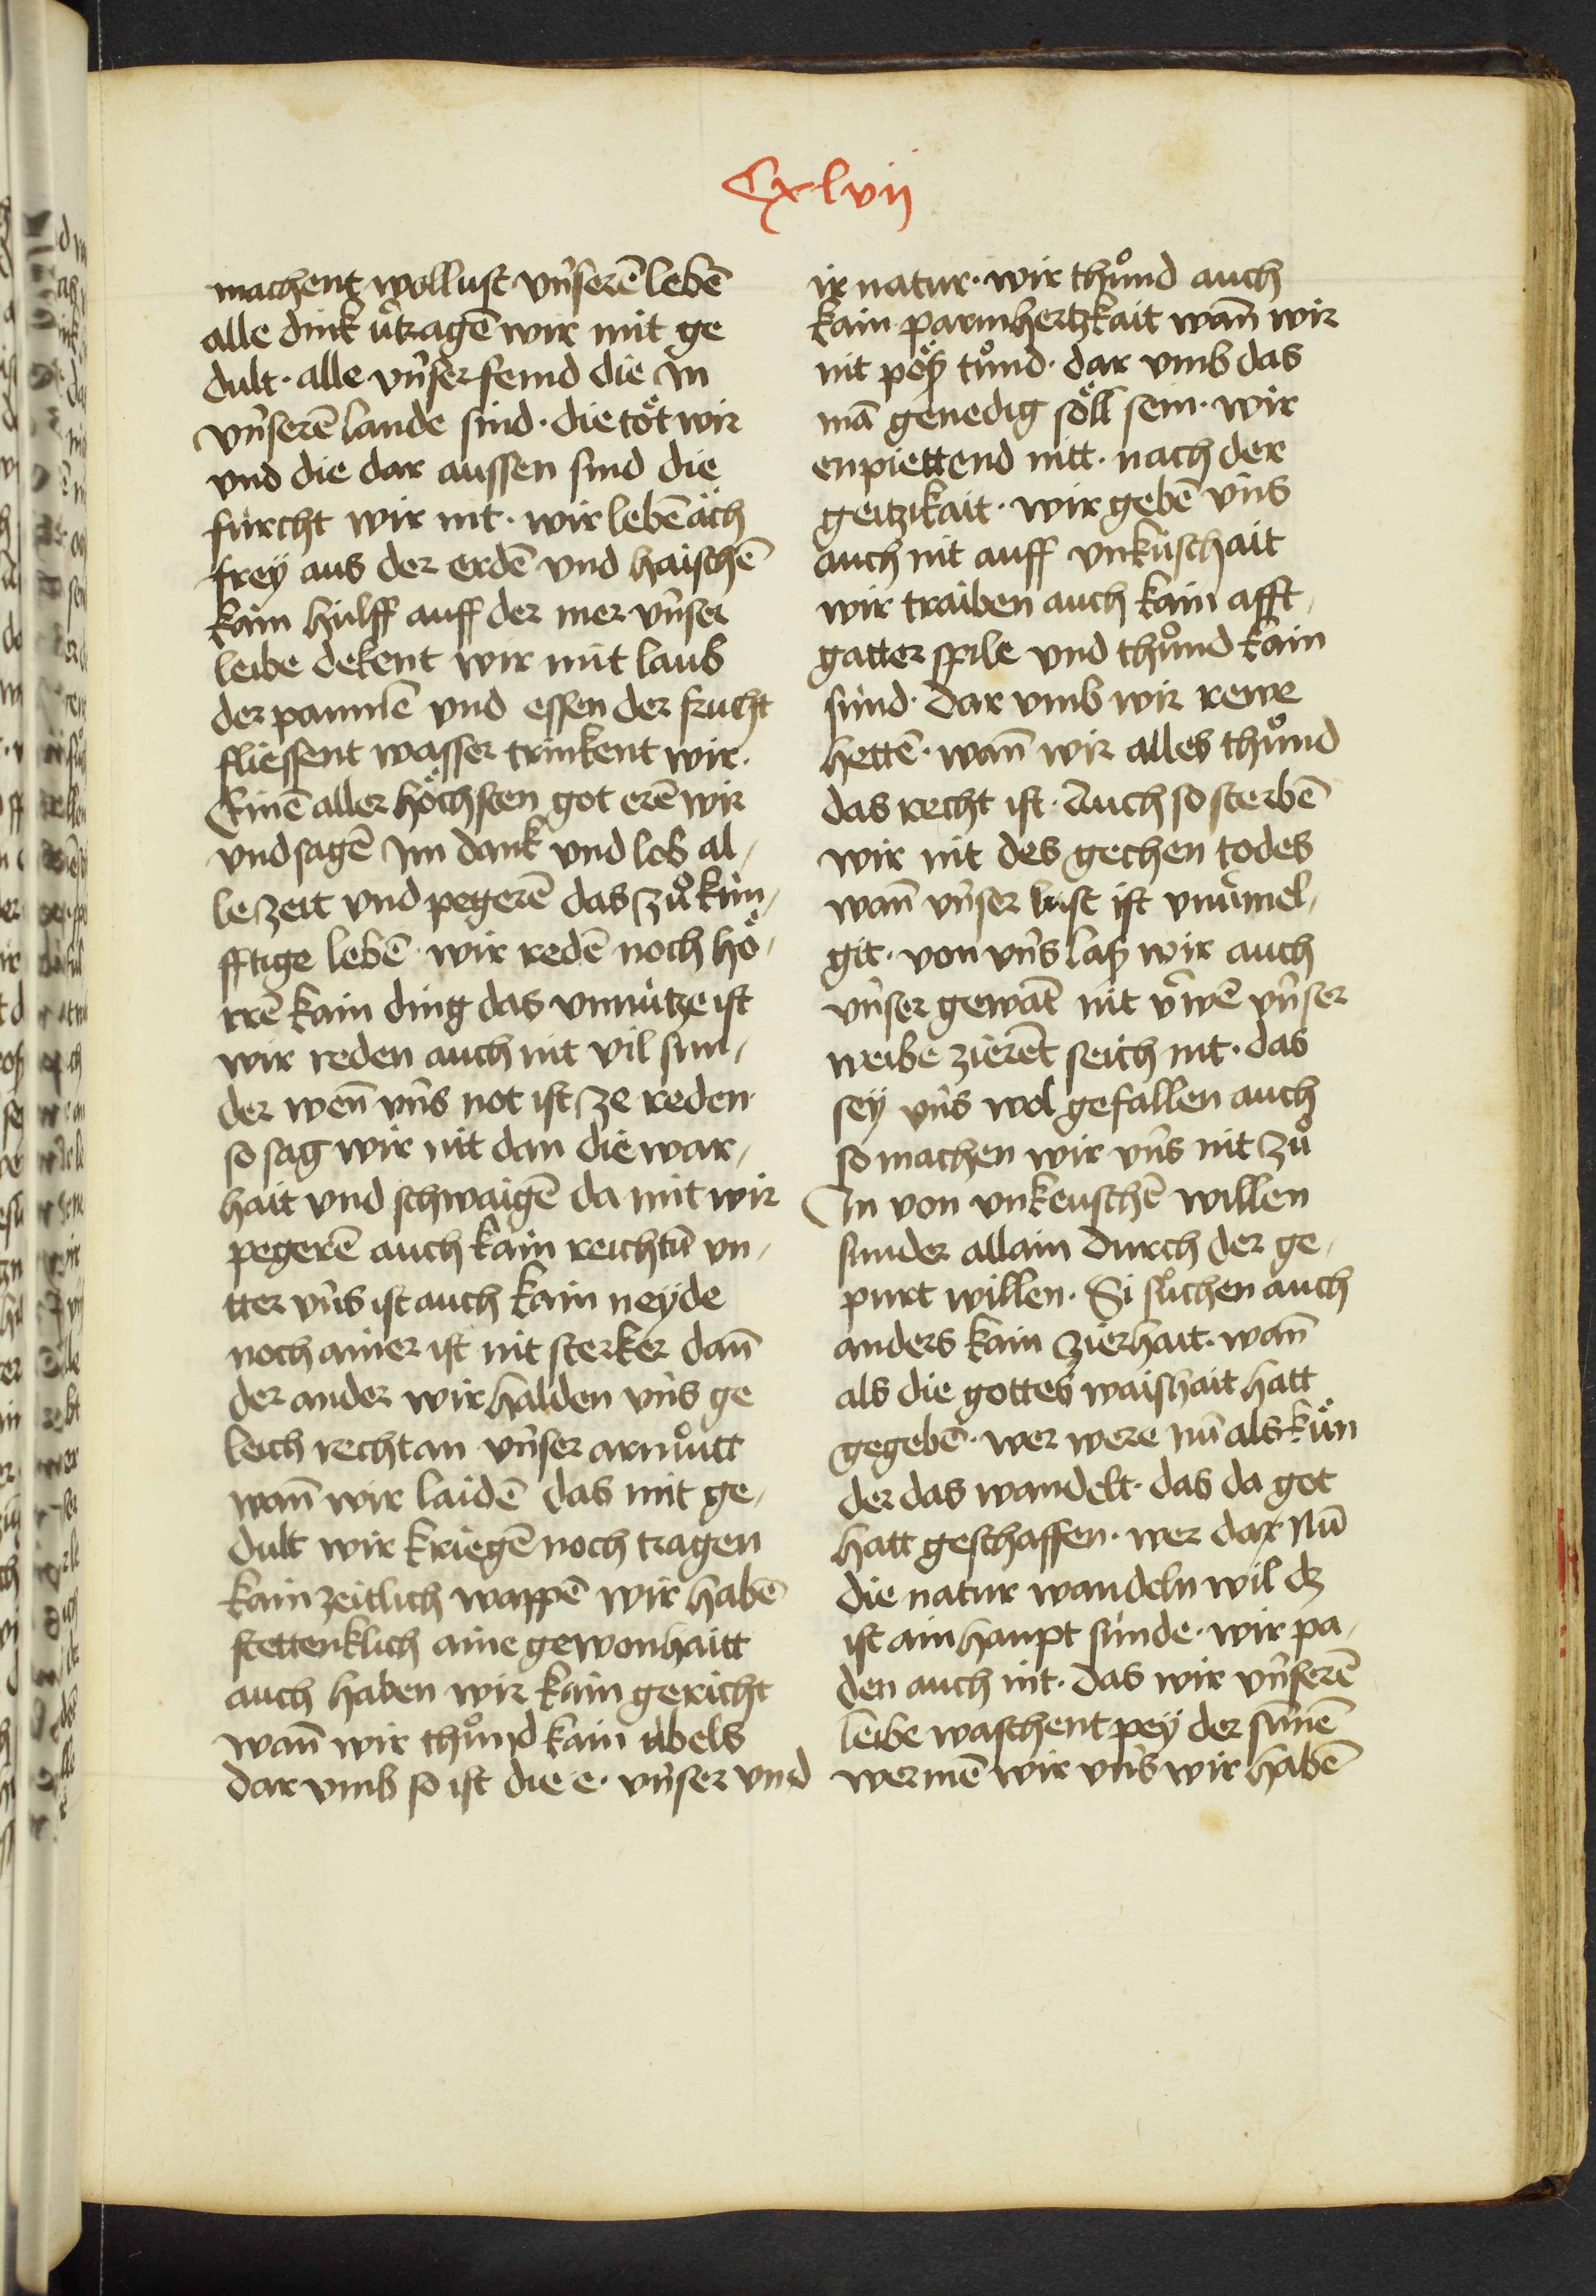 Cxlvii
machent wollust vnserē lebē
alle dink v̊tragē wir mit ge
dult · alle vnser feind die in
vnserē lande sind · die töt wir
vnd die dar aussen sind die
fürcht wir nit · wir lebē äch
frey aus der erdē vnd haischē
kain hülff auff der mer vnser
leibe dekent wir mit laub
der paumē vnd essen der frucht
fliessent wasser trinkent wir ·
Einē aller höchsten got erē wir
vnd sagē im dank vnd lob al-
lezeit vnd pegerē das zůkün-
fftige lebē · wir redē noch hö-
rrē kain ding das vnnütze ist
wir reden auch nit vil sun-
der weñ vns not ist ze reden
so sag wir nit dan die war-
hait vnd schwaigē da mit wir
pegerē auch kain reichtū vn-
tter vns ist auch kain neyde
noch ainer ist nit sterker dañ
der ander wir halden vns ge
leich recht an vnser armůtt
wañ wir laidē das mit ge-
dult wir kriegē noch tragen
kain zeitlich wappē wir habē
stettenklich aine gewonhaitt
auch haben wir kain gericht
wañ wir thůnd kain übels
dar vmb so ist die e · vnser vnd
ir natur · wir thůnd auch
kain parmhertzkait wañ wir
nit pöß tůnd · dar vmb das
mā genedig söll sein · wir
enpiettend nitt · nach der
geitzikait · wir gebē vns
auch nit auff vnküschait
wir traiben auch kain afft-
gatter spile vnd thůnd kain
sünd · dar vmb wir rewe
hettē · wañ wir alles thůnd
das recht ist · Auch so sterbē
wir nit des gechen todes
wañ vnser lust ist vnuͤmel-
git · von vns laß wir auch
vnser gewāt nit v̈wē vnser
weibe zierēt seich nit · das
sey vns wol gefallen auch
so machen wir vns nit zů
In von vnkeuschē willen
sunder allain durch der ge-
purt willen · Si sůchen auch
anders kain zierhait · wañ
als die gottes waishait hatt
gegebē · wer were nū als kün
der das wandelt · das da got
hatt geschaffen · wer dar nū
die natur wandeln wil dz
ist ain haupt sünde · wir pa-
den auch nit · das wir vnserē
leibe waschent pey der sūnē
wermē wir vns wir habē